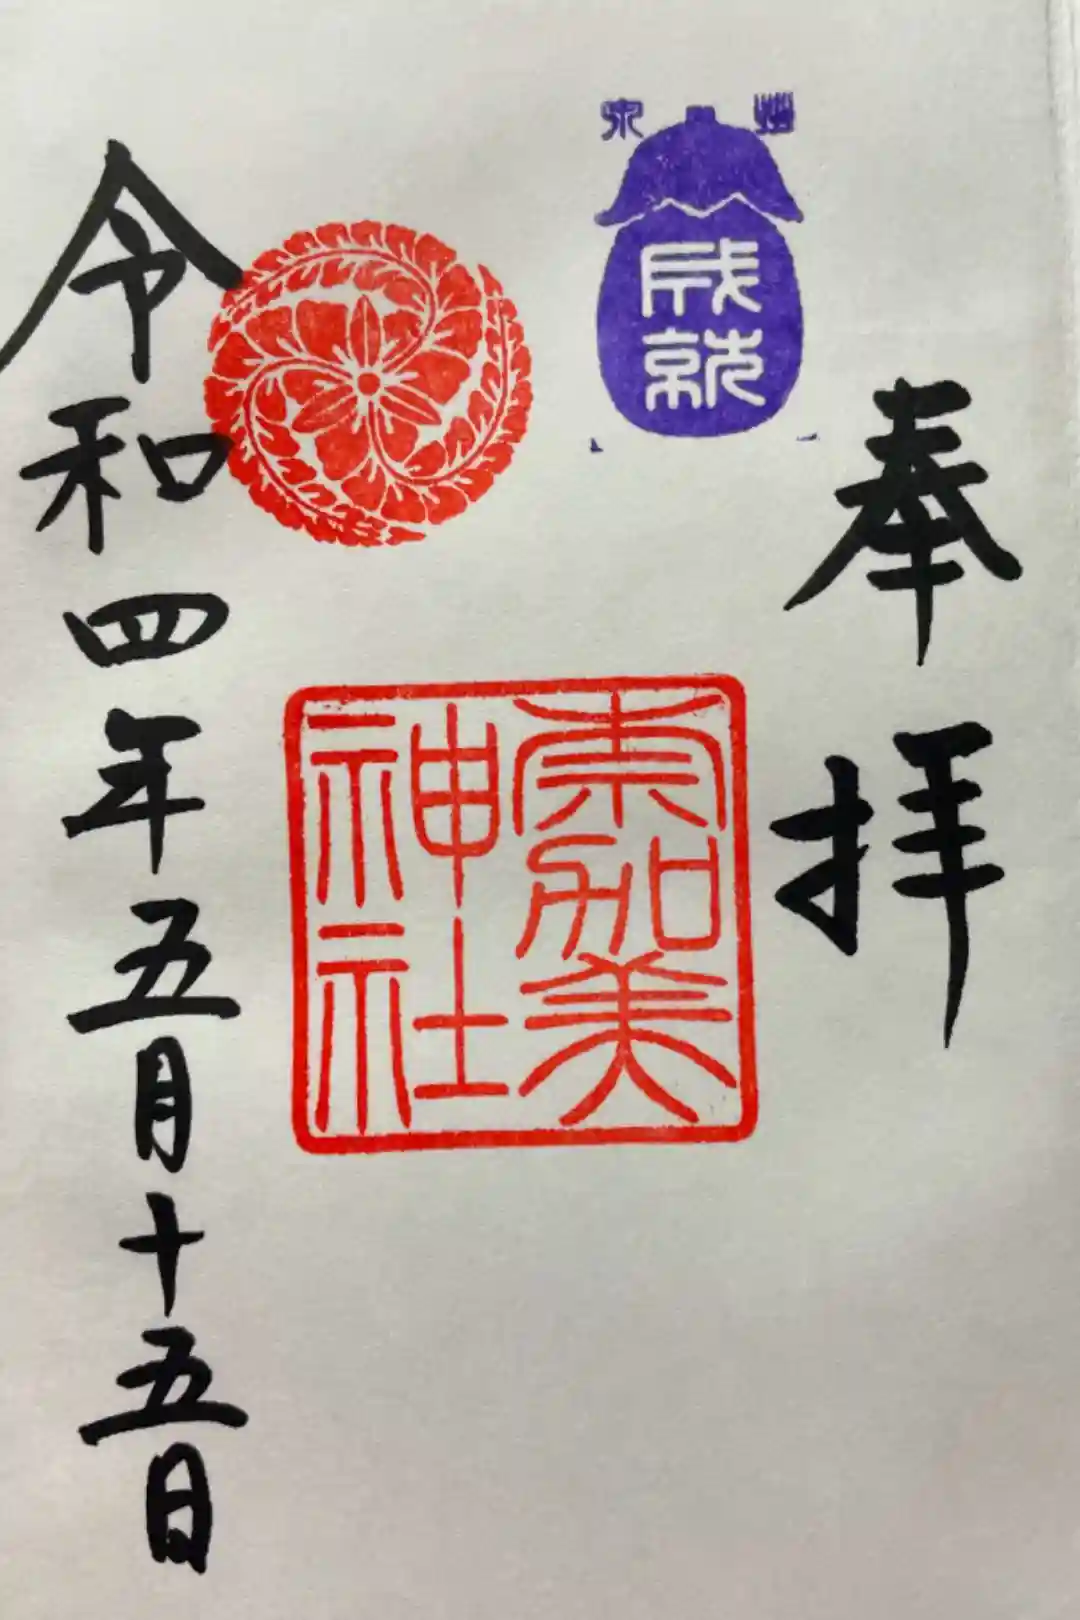 奉拝
泉州
成就
奈加美
神社
令和四年五月十五日